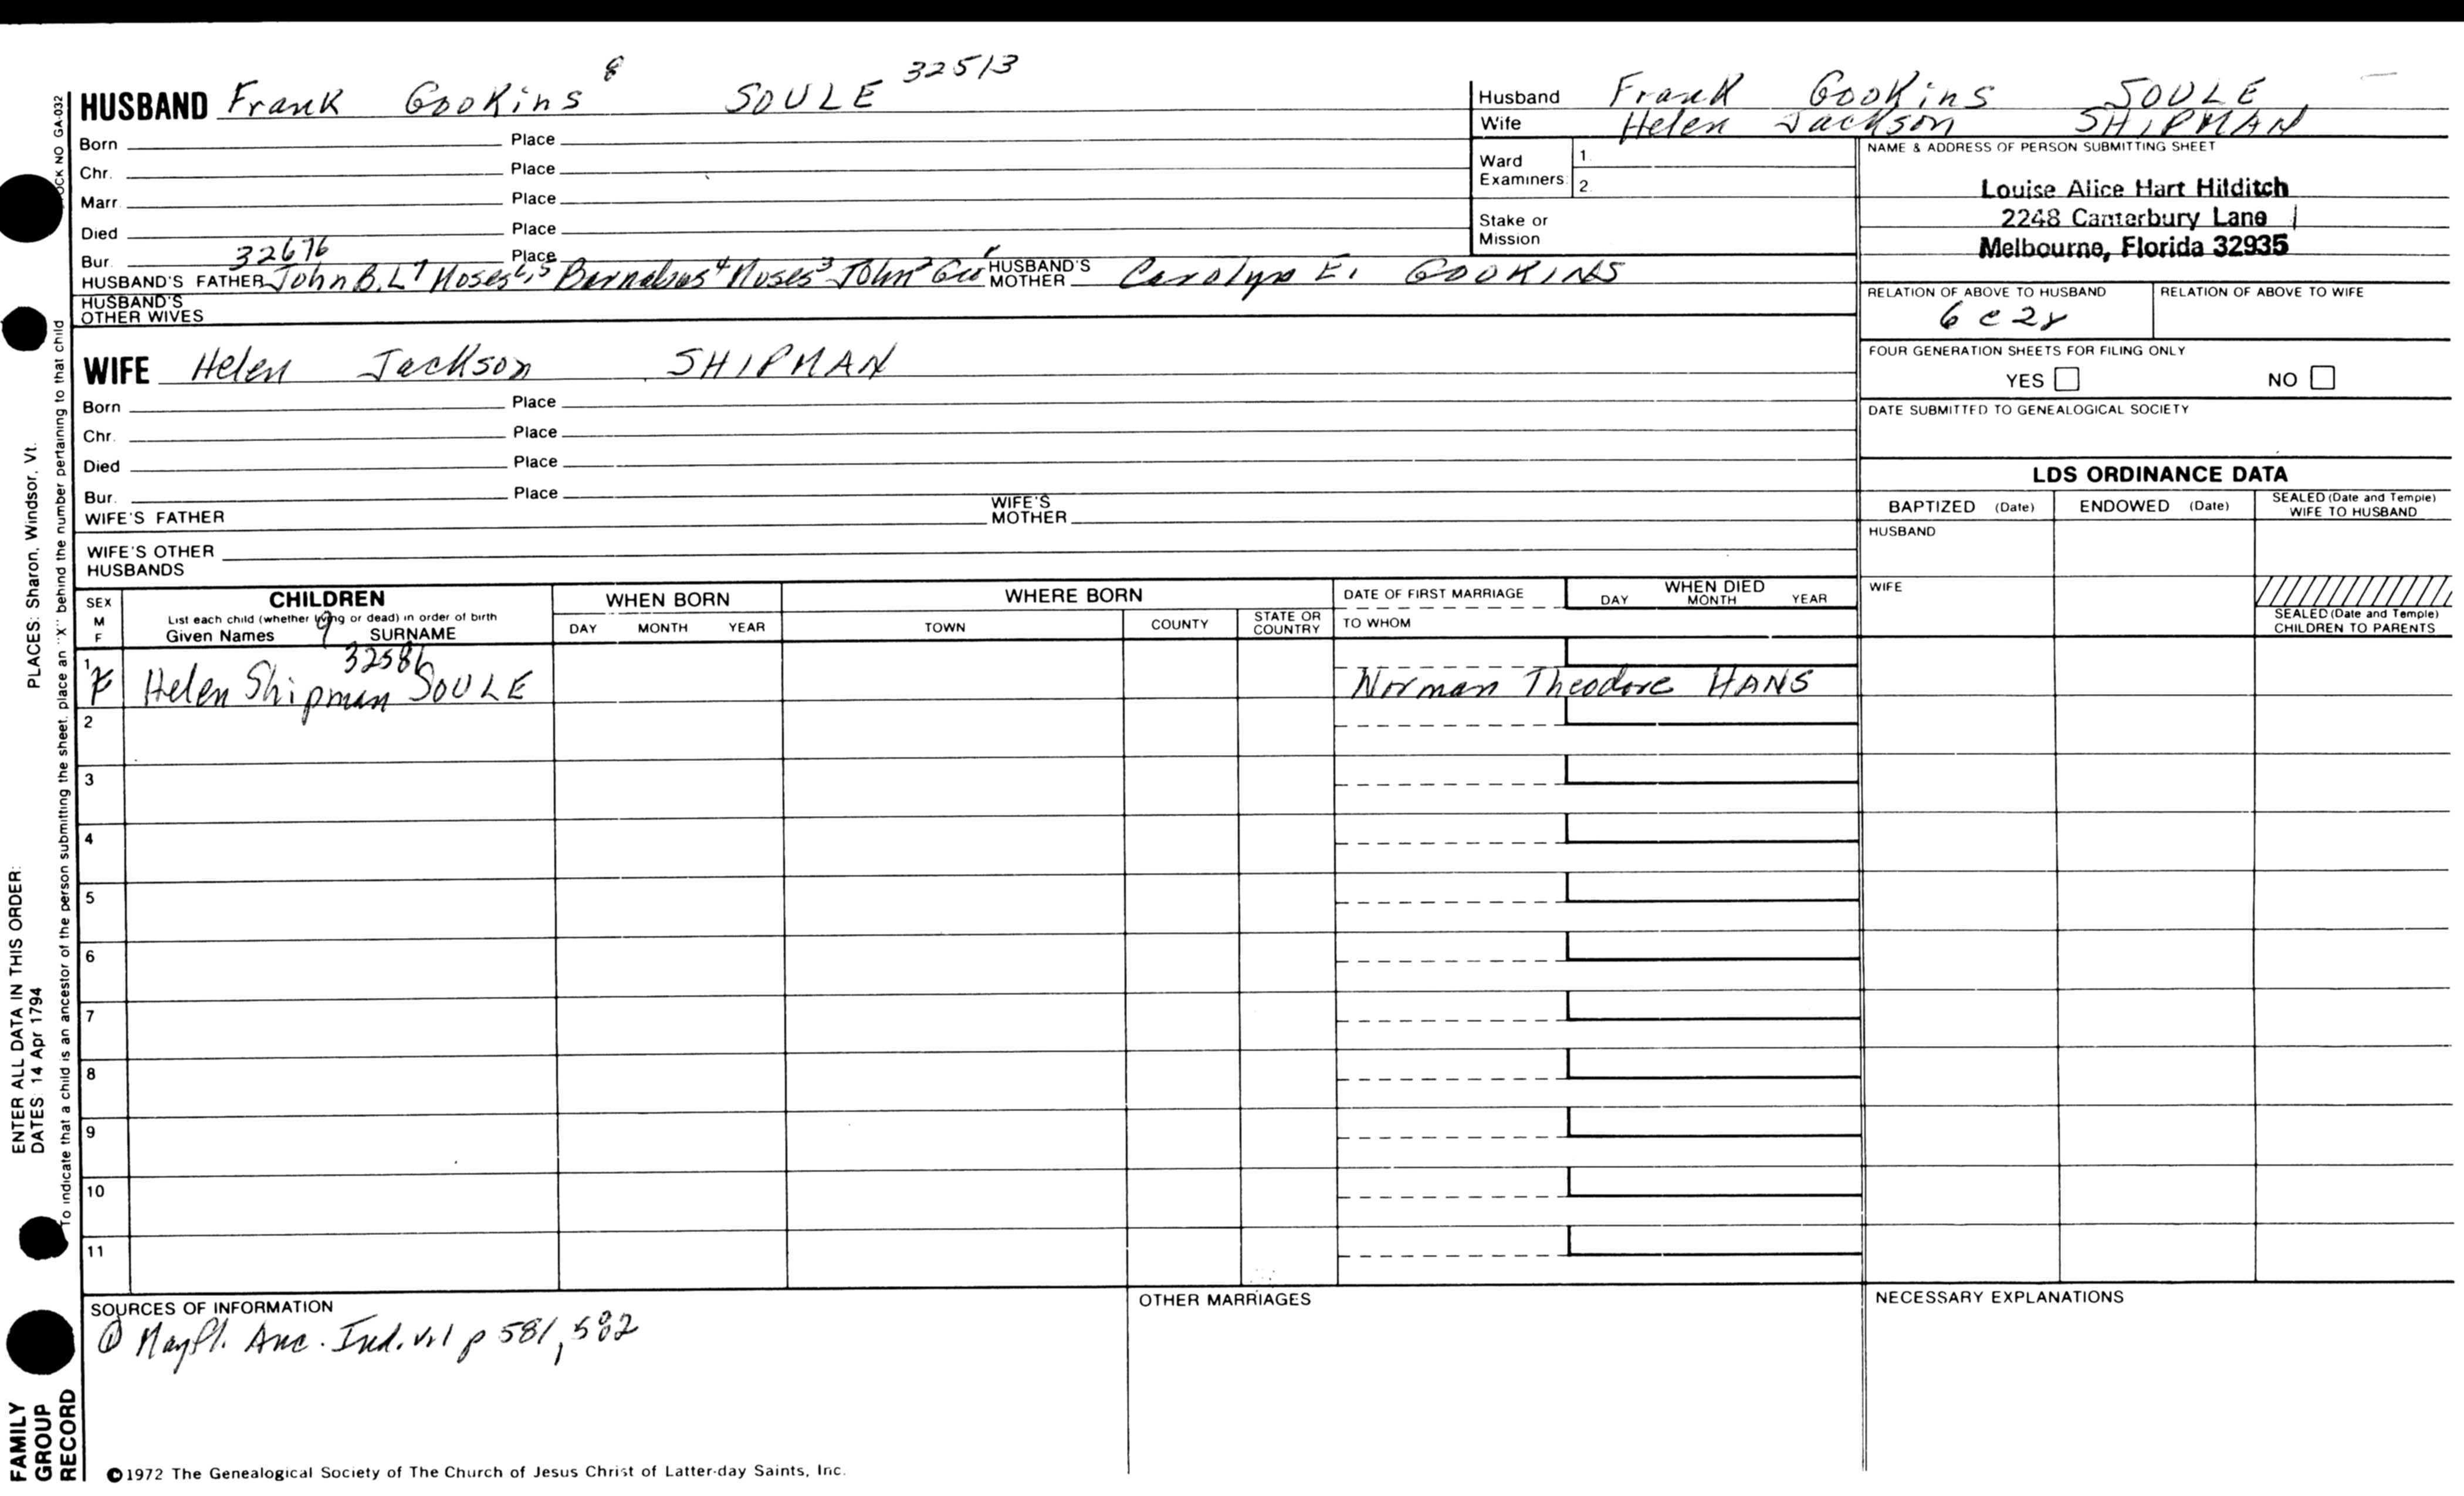 HUSBAND Frank Gookins 8 SOULE 32513
Born Place
Chr. Place
Marr. Place
Died Place
Bur. 32676 Place
HUSBAND'S FATHER John B. L 7 Moses 6,5 Barnabas 4 Moses 3 John 2 Geo HUSBAND'S MOTHER Carolyn E. GOOKINS
HUSBAND'S OTHER WIVES
WIFE Helen Jackson SHIPMAN
Born Place
Chr. Place
Died Place
Bur. Place
WIFE'S FATHER WIFE'S MOTHER
WIFE'S OTHER HUSBANDS
Husband Frank Gookins SOULE
Wife Helen Jackson SHIPMAN
Ward Examiners: 1.
2.
Stake or Mission
NAME & ADDRESS OF PERSON SUBMITTING SHEET
Louise Alice Hart Hilditch
2248 Canterbury Lane
Melbourne, Florida 32935
RELATION OF ABOVE TO HUSBAND RELATION OF ABOVE TO WIFE
6 c 2r
FOUR GENERATION SHEETS FOR FILING ONLY
YES NO
DATE SUBMITTED TO GENEALOGICAL SOCIETY
LDS ORDINANCE DATA
BAPTIZED (Date) ENDOWED (Date) SEALED (Date and Temple) WIFE TO HUSBAND
HUSBAND
WIFE
SEALED (Date and Temple) CHILDREN TO PARENTS
SEX M F
CHILDREN
List each child (whether living or dead) in order of birth
Given Names SURNAME
WHEN BORN
DAY MONTH YEAR
WHERE BORN
TOWN COUNTY STATE OR COUNTRY
DATE OF FIRST MARRIAGE
TO WHOM
WHEN DIED
DAY MONTH YEAR
1 F Helen Shipman 9 SOULE 32586 Norman Theodore HANS
2
3
4
5
6
7
8
9
10
11
SOURCES OF INFORMATION
① Mayfl. Anc. Ind. vol p 581, 582
OTHER MARRIAGES
NECESSARY EXPLANATIONS
©1972 The Genealogical Society of The Church of Jesus Christ of Latter-day Saints, Inc.
FAMILY GROUP RECORD
ENTER ALL DATA IN THIS ORDER:
DATES: 14 Apr 1794
PLACES: Sharon, Windsor, Vt.
To indicate that a child is an ancestor of the person submitting the sheet, place an "X" behind the number pertaining to that child
OCK NO GA-032